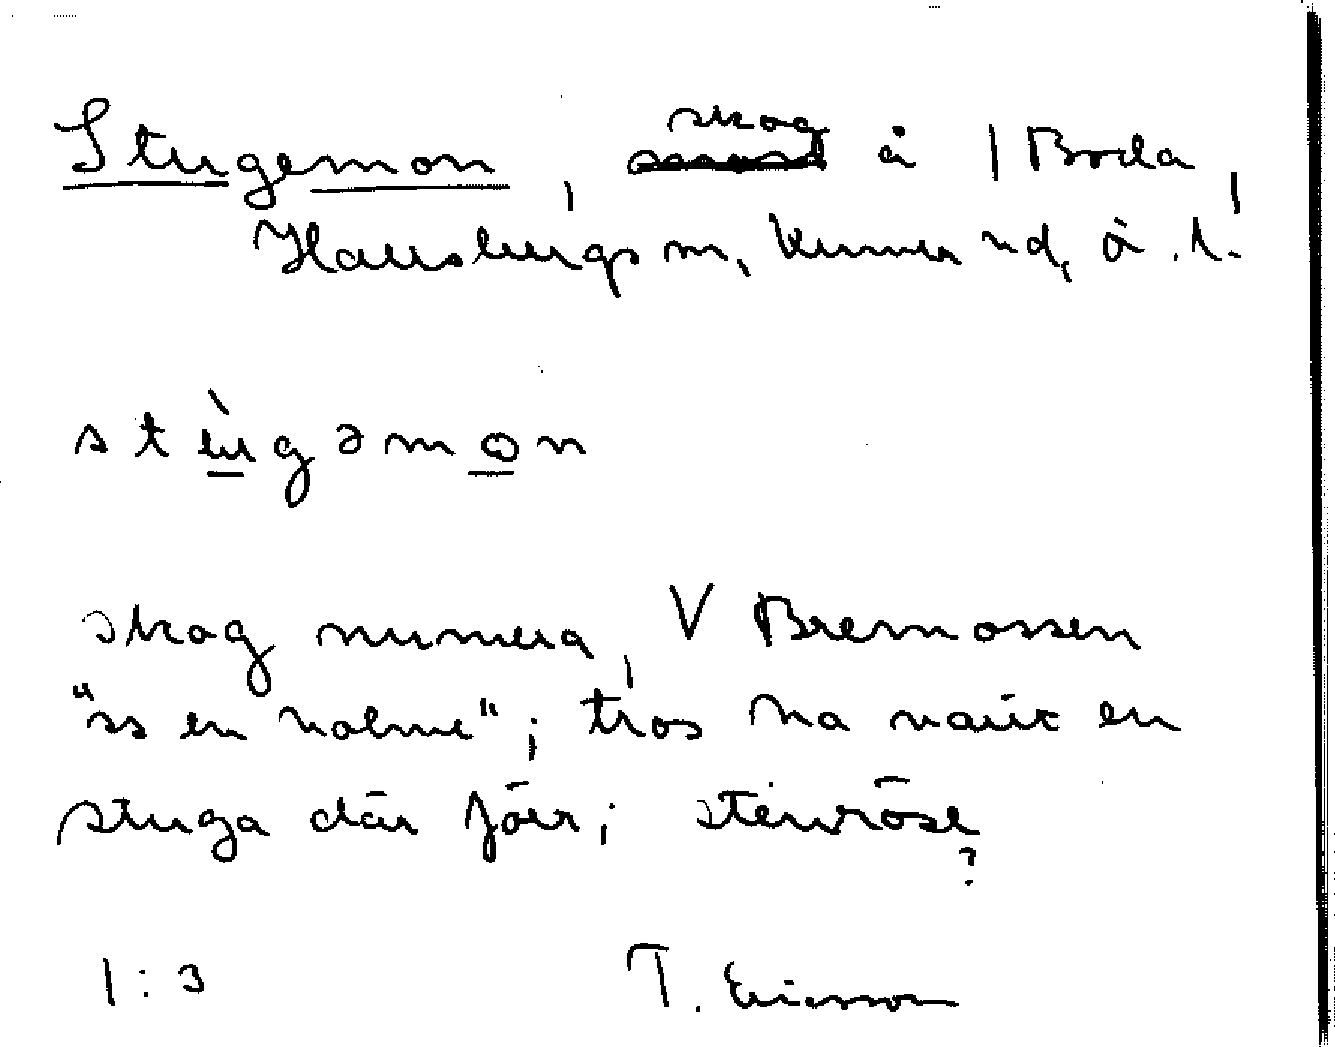 Stugemon, skog å 1 Boda,
Hallsbergs sn, Kumla hd, ö. l.
stùgəmon
skog numera, V Bremossen
"ss en holme"; tros ha varit en
stuga där förr; stenröse
?
1:3 T. Ericsson